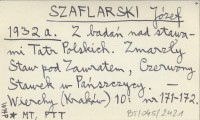 SZAFLARSKI Józef
1932a. Z badań nad stawa-
mi Tatr Polskich. Zmarzły
Staw pod Zawratem, Czerwony
Stawek w Pańszczycy. –
Wierchy (Kraków) 10: nr 171-172.
* MT, PTT